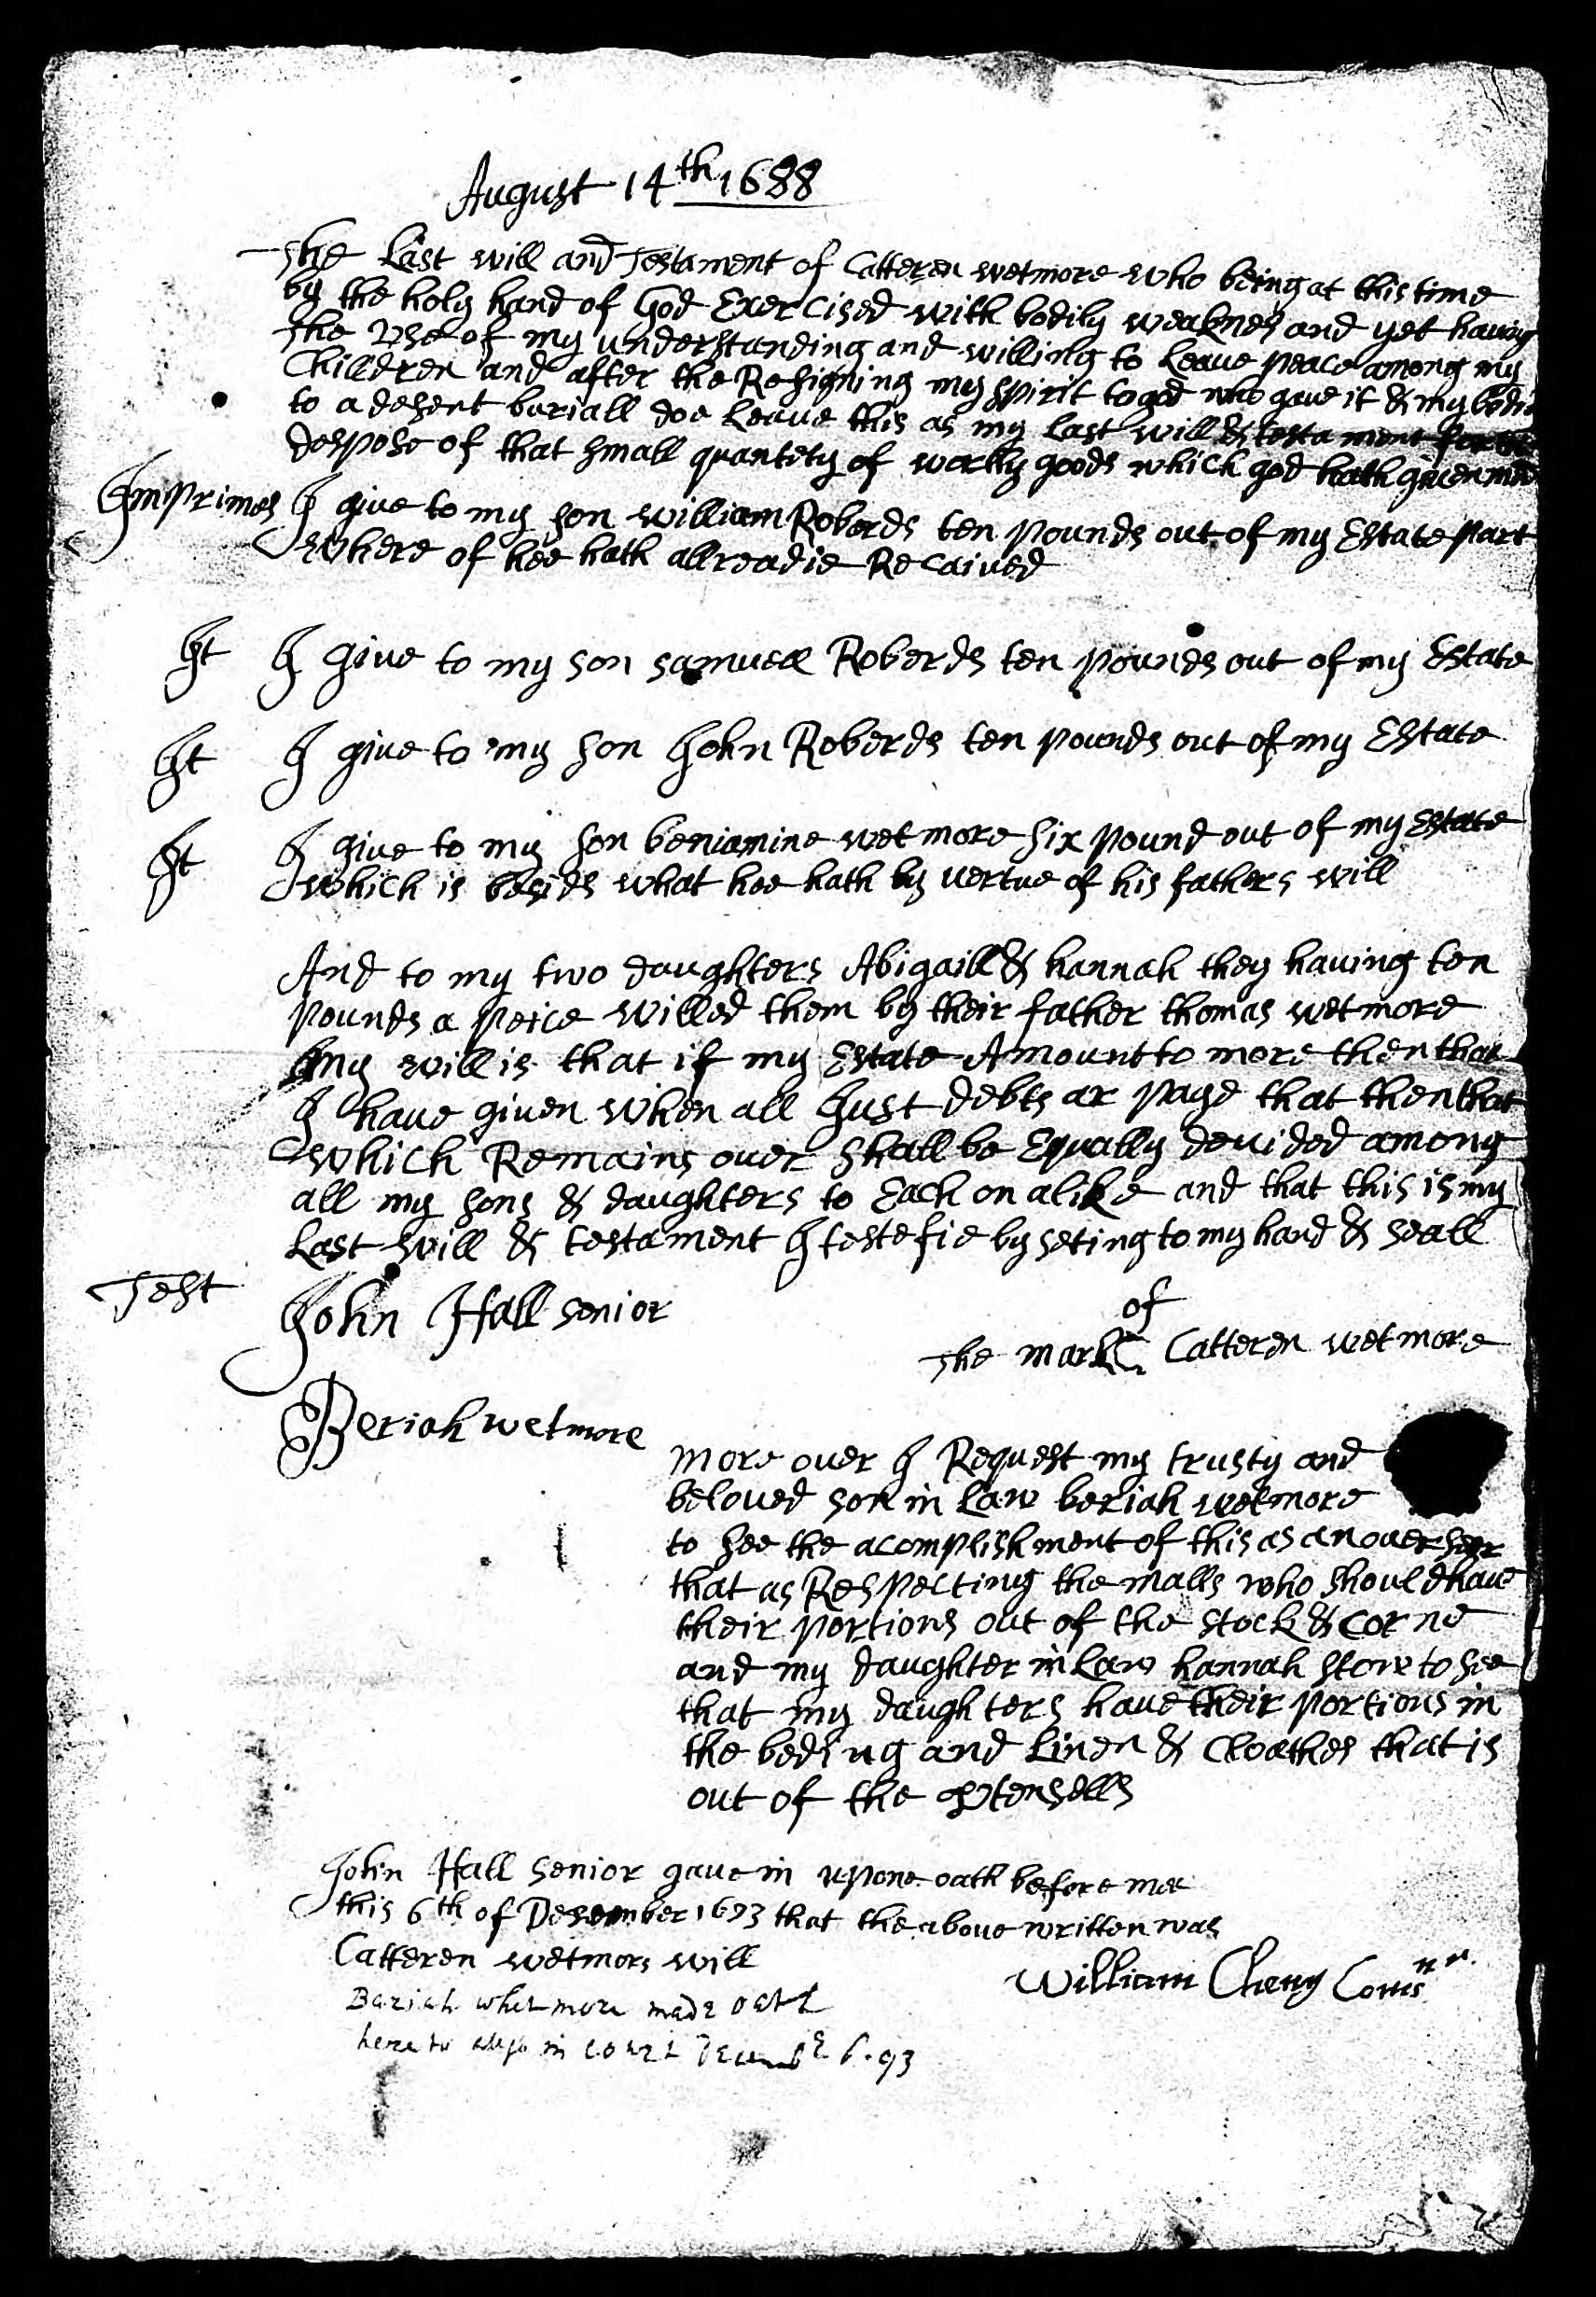 August 14th 1688
The Last will and Testament of Catteren wetmore who being at this time
by the holy hand of God Exercised with bodily weaknes and yet having
the Use of my understanding and willing to Leave peace among my
Children and after the Resigning my spirit to god who gave it & my bodie
to a desent buriall doe Leave this as my Last will & testament
despose of that small quantety of worlly goods which god hath given mee
Imprimes I give to my son william Roberds ten pounds out of my Estate part
where of hee hath allreadie Recaived
It I give to my son samuell Roberds ten pounds out of my Estate
It I give to my son John Roberds ten pounds out of my Estate
It I give to my son beniamine wetmore six pound out of my Estate
which is besids what hee hath by vertue of his fathers will
And to my two daughters Abigaill & hannah they having ten
pounds a peice willed them by their father thomas wetmore
my will is that if my Estate Amount to more then that
I have given when all Just debts ar payd that then that
which Remains over shall be Equally devided among
all my sons & daughters to Each on alike and that this is my
Last will & testament I testefie by seting to my hand & seall
Test John Hall senior
of
the mark Catteren wetmore
Beriah wetmore
more over I Request my trusty and
beloved son in Law beriah wetmore
to see the acomplishment of this as an overseer
that as Respecting the malls who should have
their portions out of the stock & corne
and my daughter in Law hannah stow to see
that my daughters have their portions in
the beding and Linen & Cloathes that is
out of the Utensells
John Hall senior gave in upone oath before mee
this 6th of Desember 1693 that the above written was
Catteren wetmors will
William Cheny Comsnr
Bariah whetmore made oath
here to allso in court Decembr 6. 93